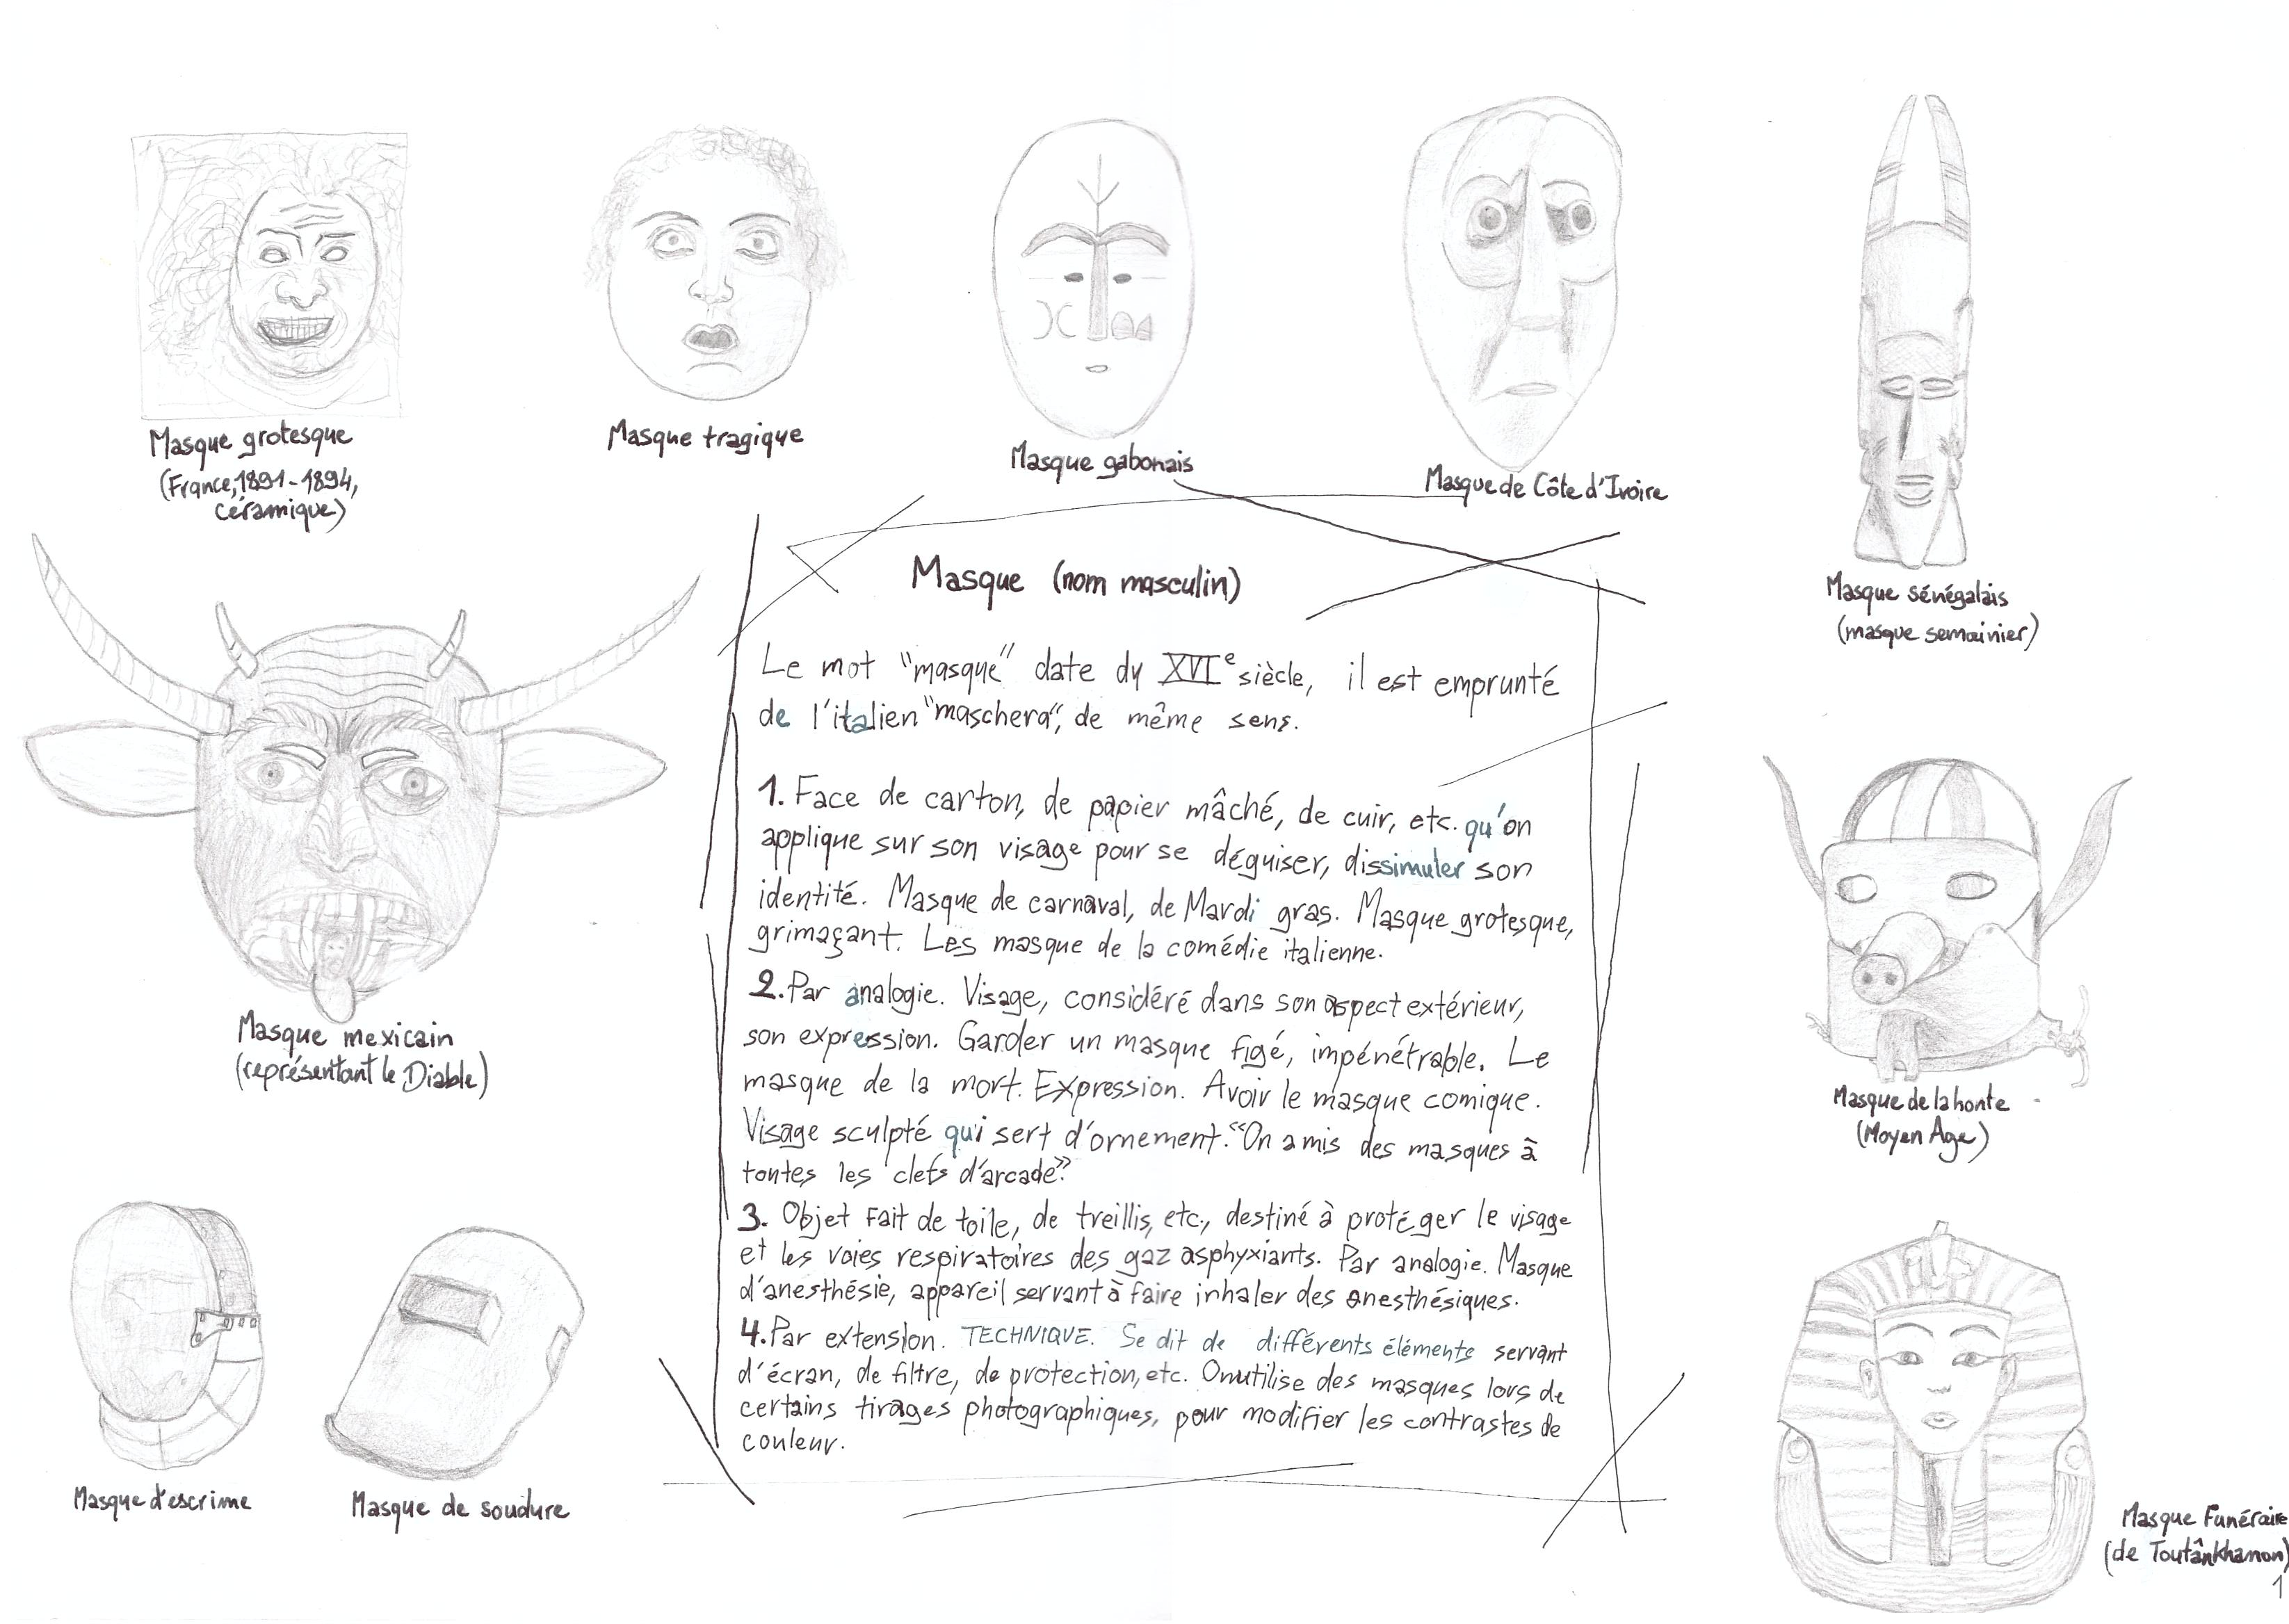 Masque grotesque
(France, 1891-1894,
céramique)
Masque tragique
Masque gabonais
Masque de Côte d'Ivoire
Masque sénégalais
(masque semainier)
Masque mexicain
(représentant le Diable)
Masque (nom masculin)
Le mot "masque" date du XVIe siècle, il est emprunté
de l'italien "maschera", de même sens.
1. Face de carton, de papier mâché, de cuir, etc. qu'on
applique sur son visage pour se déguiser, dissimuler son
identité. Masque de carnaval, de Mardi gras. Masque grotesque,
grimaçant. Les masque de la comédie italienne.
2. Par analogie. Visage, considéré dans son aspect extérieur,
son expression. Garder un masque figé, impénétrable. Le
masque de la mort. Expression. Avoir le masque comique.
Visage sculpté qui sert d'ornement. "On a mis des masques à
toutes les clefs d'arcade".
3. Objet fait de toile, de treillis, etc., destiné à protéger le visage
et les voies respiratoires des gaz asphyxiants. Par analogie. Masque
d'anesthésie, appareil servant à faire inhaler des anesthésiques.
4. Par extension. TECHNIQUE. Se dit de différents éléments servant
d'écran, de filtre, de protection, etc. On utilise des masques lors de
certains tirages photographiques, pour modifier les contrastes de
couleur.
Masque de la honte
(Moyen Age)
Masque d'escrime
Masque de soudure
Masque Funéraire
(de Toutânkhamon)
1